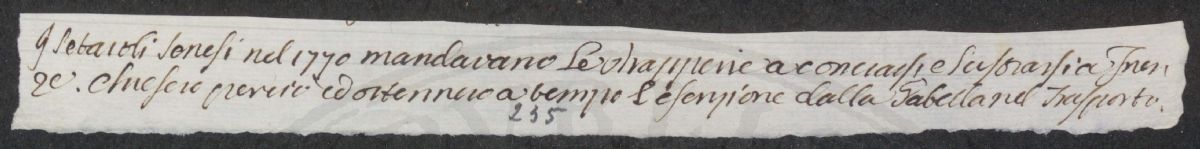 I Setaioli Senesi nel 1770 mandavano le drapperie a conciarsi, e lustrarsi a Firen
ze. Chiesero perciò ed ottennero a tempo l'esenzione dalla Gabella nel Trasporto.
235